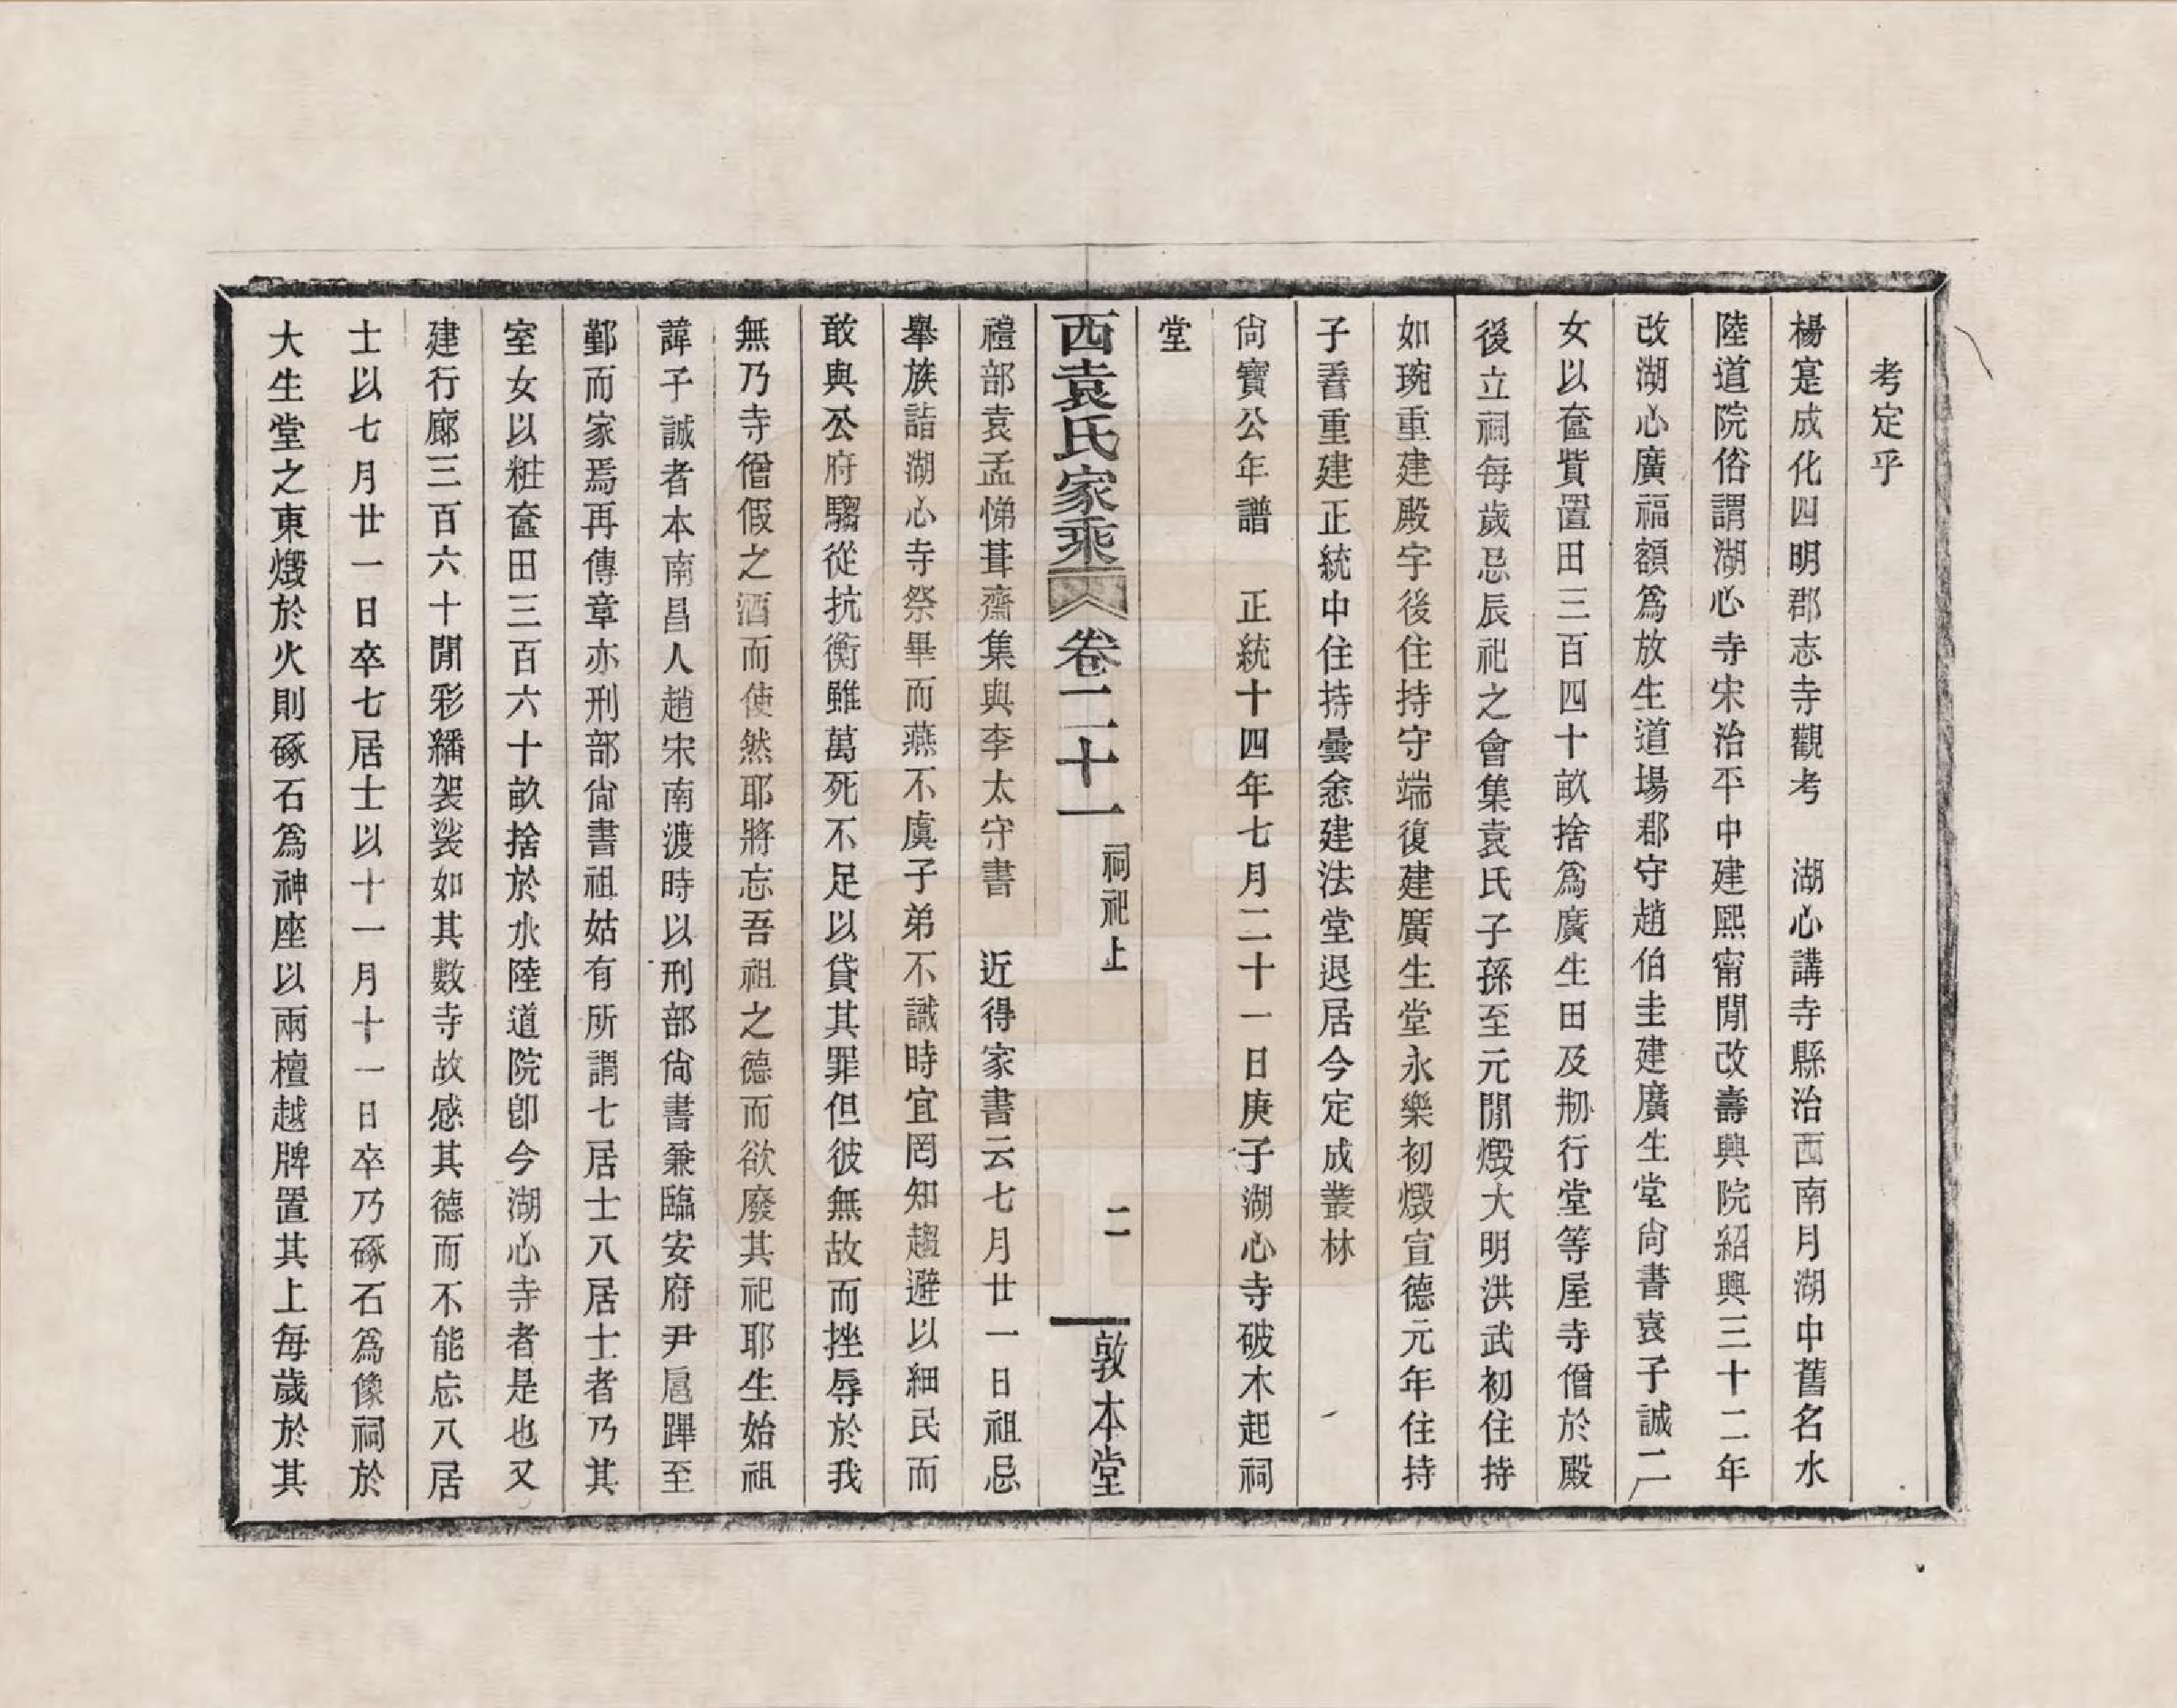 考定乎
楊寔成化四明郡志寺觀考　湖心講寺縣治西南月湖中舊名水
陸道院俗謂湖心寺宋治平中建熙甯閒改壽興院紹興三十二年
改湖心廣福額爲放生道場郡守趙伯圭建廣生堂尙書袁子誠二
女以奩貲置田三百四十畝捨爲廣生田及剏行堂等屋寺僧於殿
後立祠每歲忌辰祀之會集袁氏子孫至元閒燬大明洪武初住持
如琬重建殿宇後住持守端復建廣生堂永樂初燬宣德元年住持
子𣈱重建正統中住持曇悆建法堂退居今定成叢林
尙寶公年譜　正統十四年七月二十一日庚子湖心寺破木起祠
堂
西袁氏家乘　卷二十一　祠祀上　二　敦本堂
禮部袁孟悌葺齋集與李太守書　近得家書云七月廿一日祖忌
舉族詣湖心寺祭畢而燕不虞子弟不識時宜罔知趨避以細民而
敢與公府騶從抗衡雖萬死不足以貸其罪但彼無故而挫辱於我
無乃寺僧假之酒而使然耶將忘吾祖之德而欲廢其祀耶生始祖
諱子誠者本南昌人趙宋南渡時以刑部尙書兼臨安府尹扈蹕至
鄞而家焉再傳章亦刑部尙書祖姑有所謂七居士八居士者乃其
室女以粧奩田三百六十畝捨於水陸道院卽今湖心寺者是也又
建行廊三百六十閒彩繙袈裟如其數寺故感其德而不能忘八居
士以七月廿一日卒七居士以十一月十一日卒乃琢石爲像祠於
大生堂之東燬於火則琢石爲神座以兩檀越牌置其上每歲於其